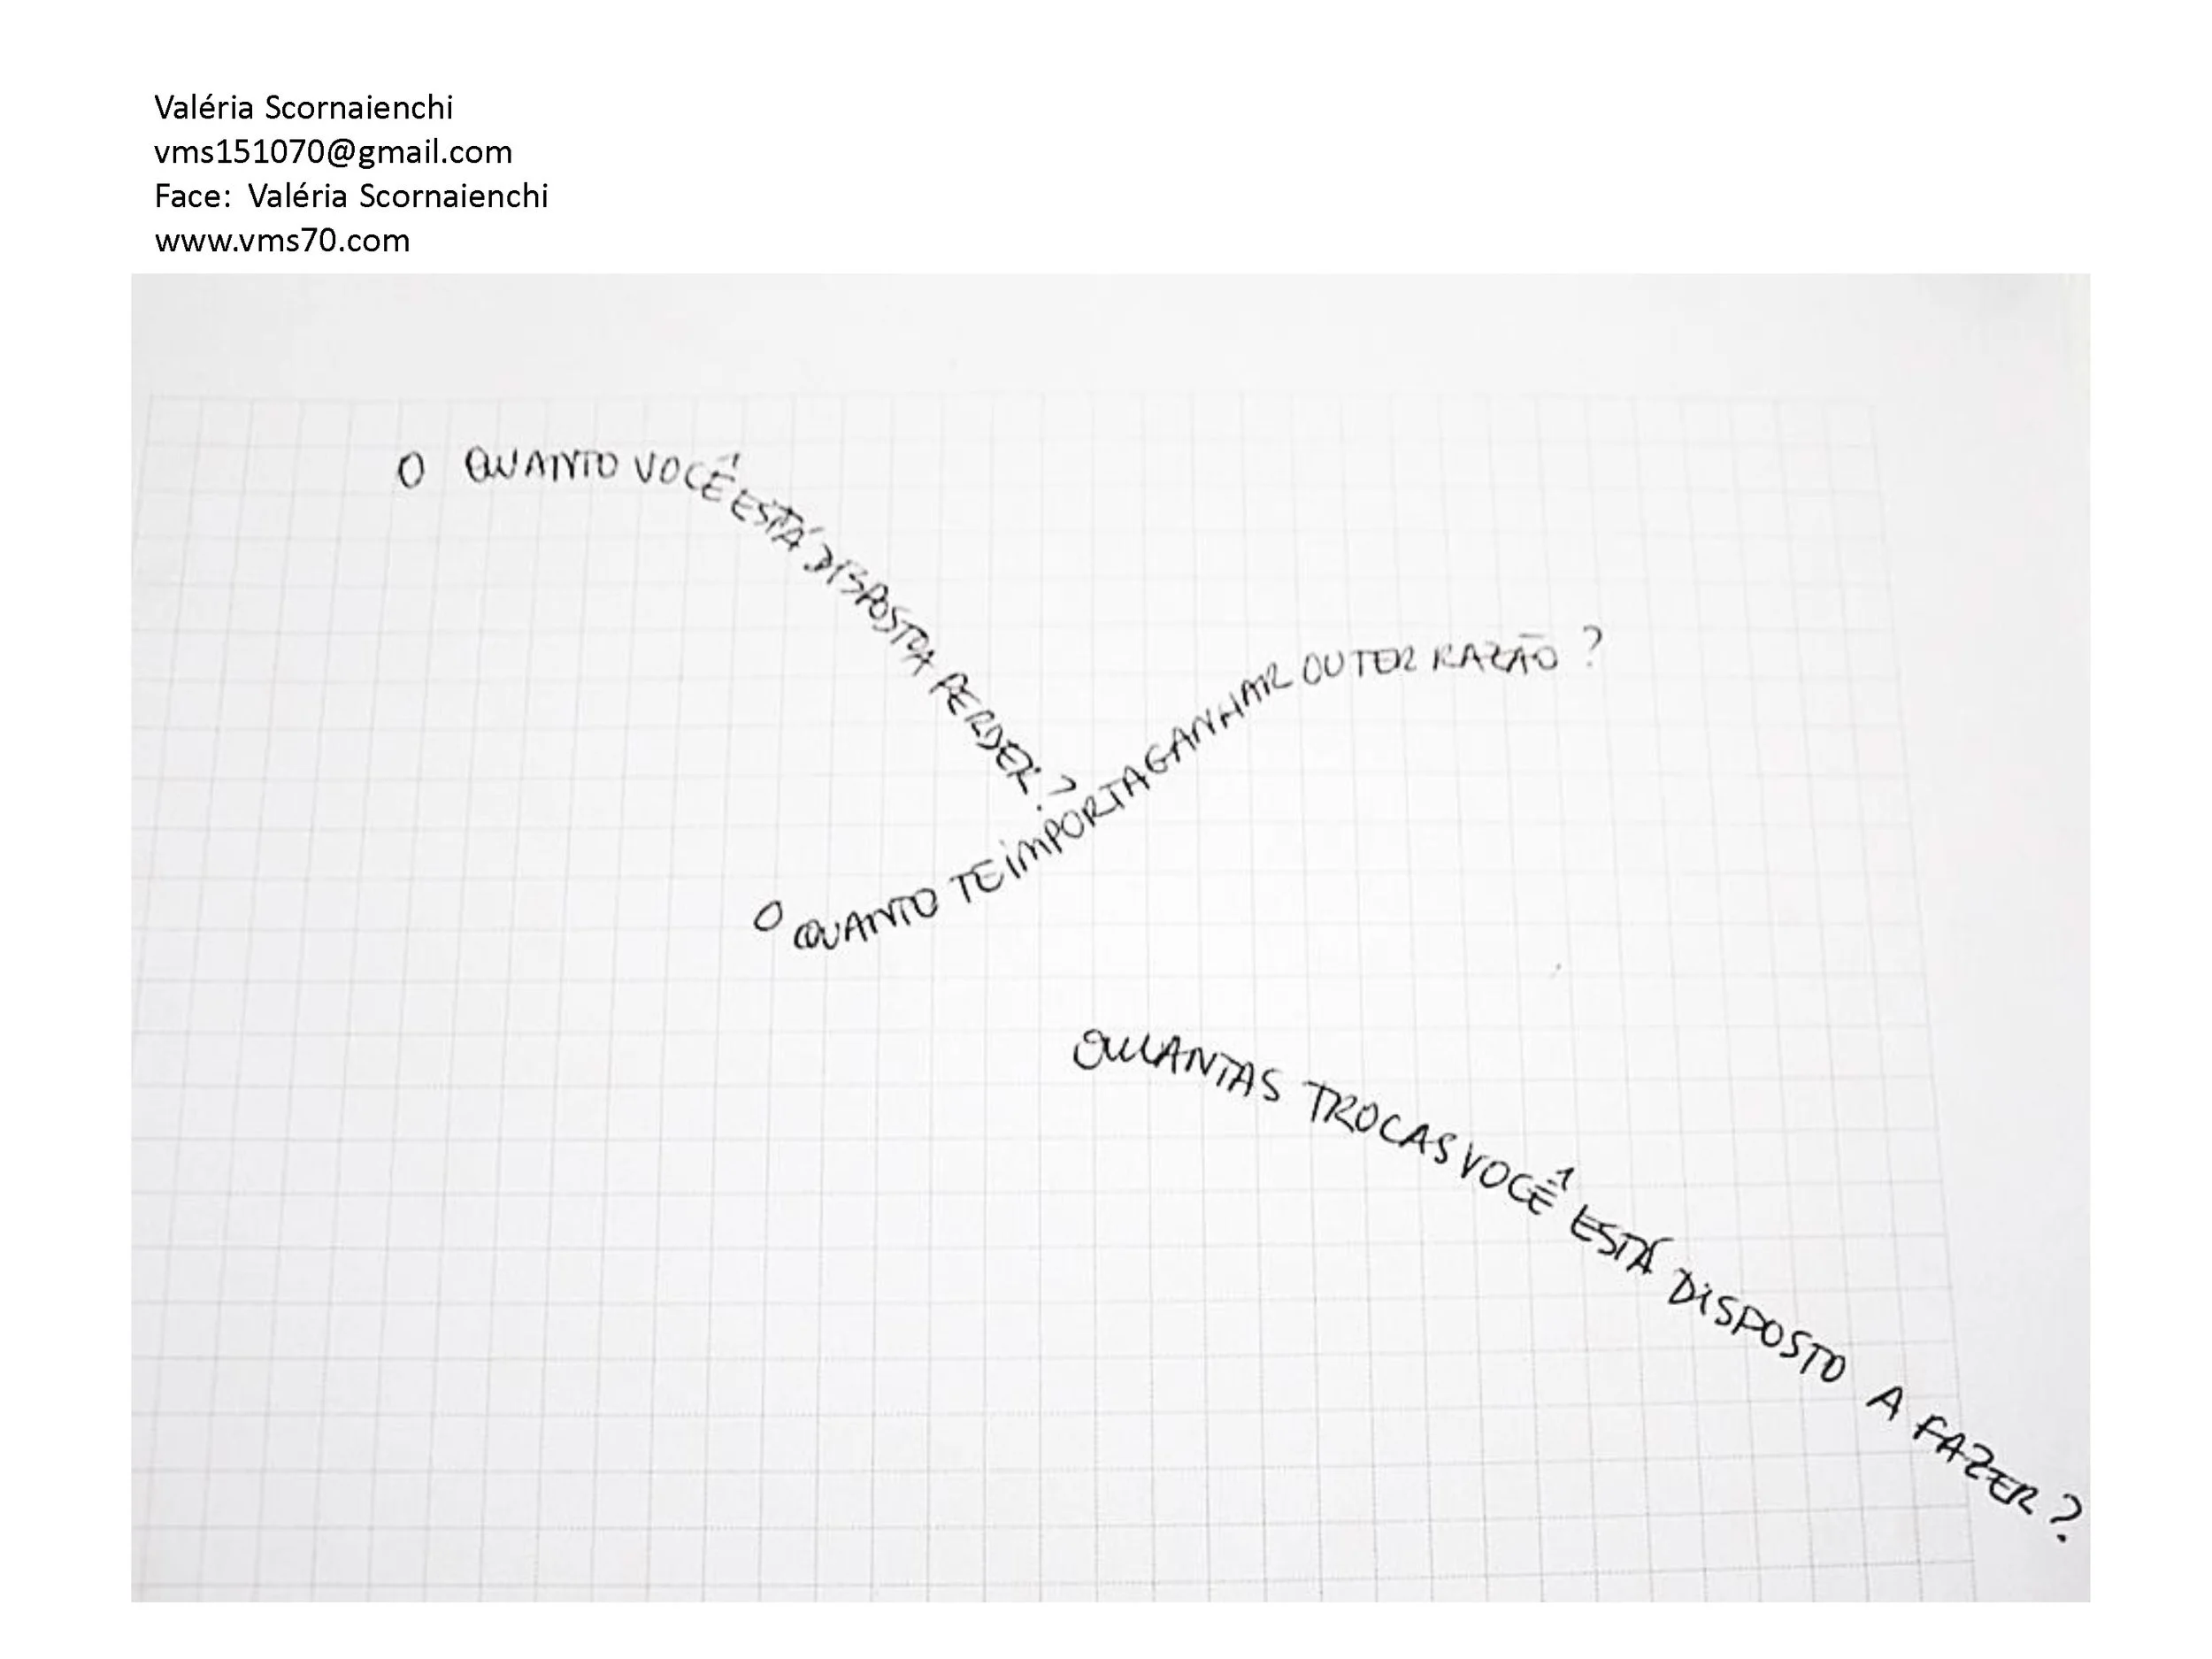 Valéria Scornaienchi
vms151070@gmail.com
Face: Valéria Scornaienchi
www.vms70.com
O QUANTO VOCÊ ESTÁ DISPOSTO A PERDER?
O QUANTO TE IMPORTA GANHAR OU TER RAZÃO?
QUANTAS TROCAS VOCÊ ESTÁ DISPOSTO A FAZER?